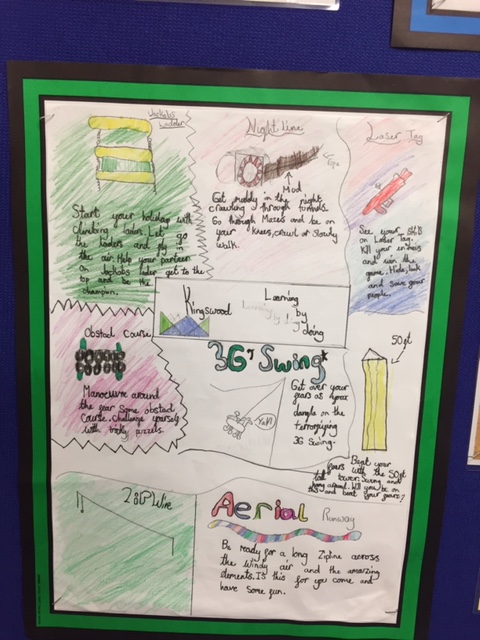 Jackobs
Ladder
Start your holiday with
Climbing aides. Let go
the
and fly in
the air. Help your partner
on Jackobs lader get to the
top and be the
champion.
Nightline
Rope
Mud
Get muddy in the night
crawling through tunnels.
Go through Mazes and be on
your knees, crawl or steady
walk.
Laser Tag
See your skills
on Laser Tag.
Kill your enimies
and win the
game. Hide, look
and save your
people.
Kingswood
Learning
by
doing
Obstacl Course
Manoeuvre around
the
some obstacl
Course. Challenge yourself
with tricky puzzels.
3G Swing
YaY!
Get over your
fears as your
dangle on the
terrorfying
3G Swing.
50ft
Beat your
fears with the 50ft
tall tower. Swing and
Will you be on
and beat your fears?
Zip Wire
Aerial Runway
Be ready for a long Zipline across
the windy air and the amazing
elements. Is this for you come and
have Some fun.